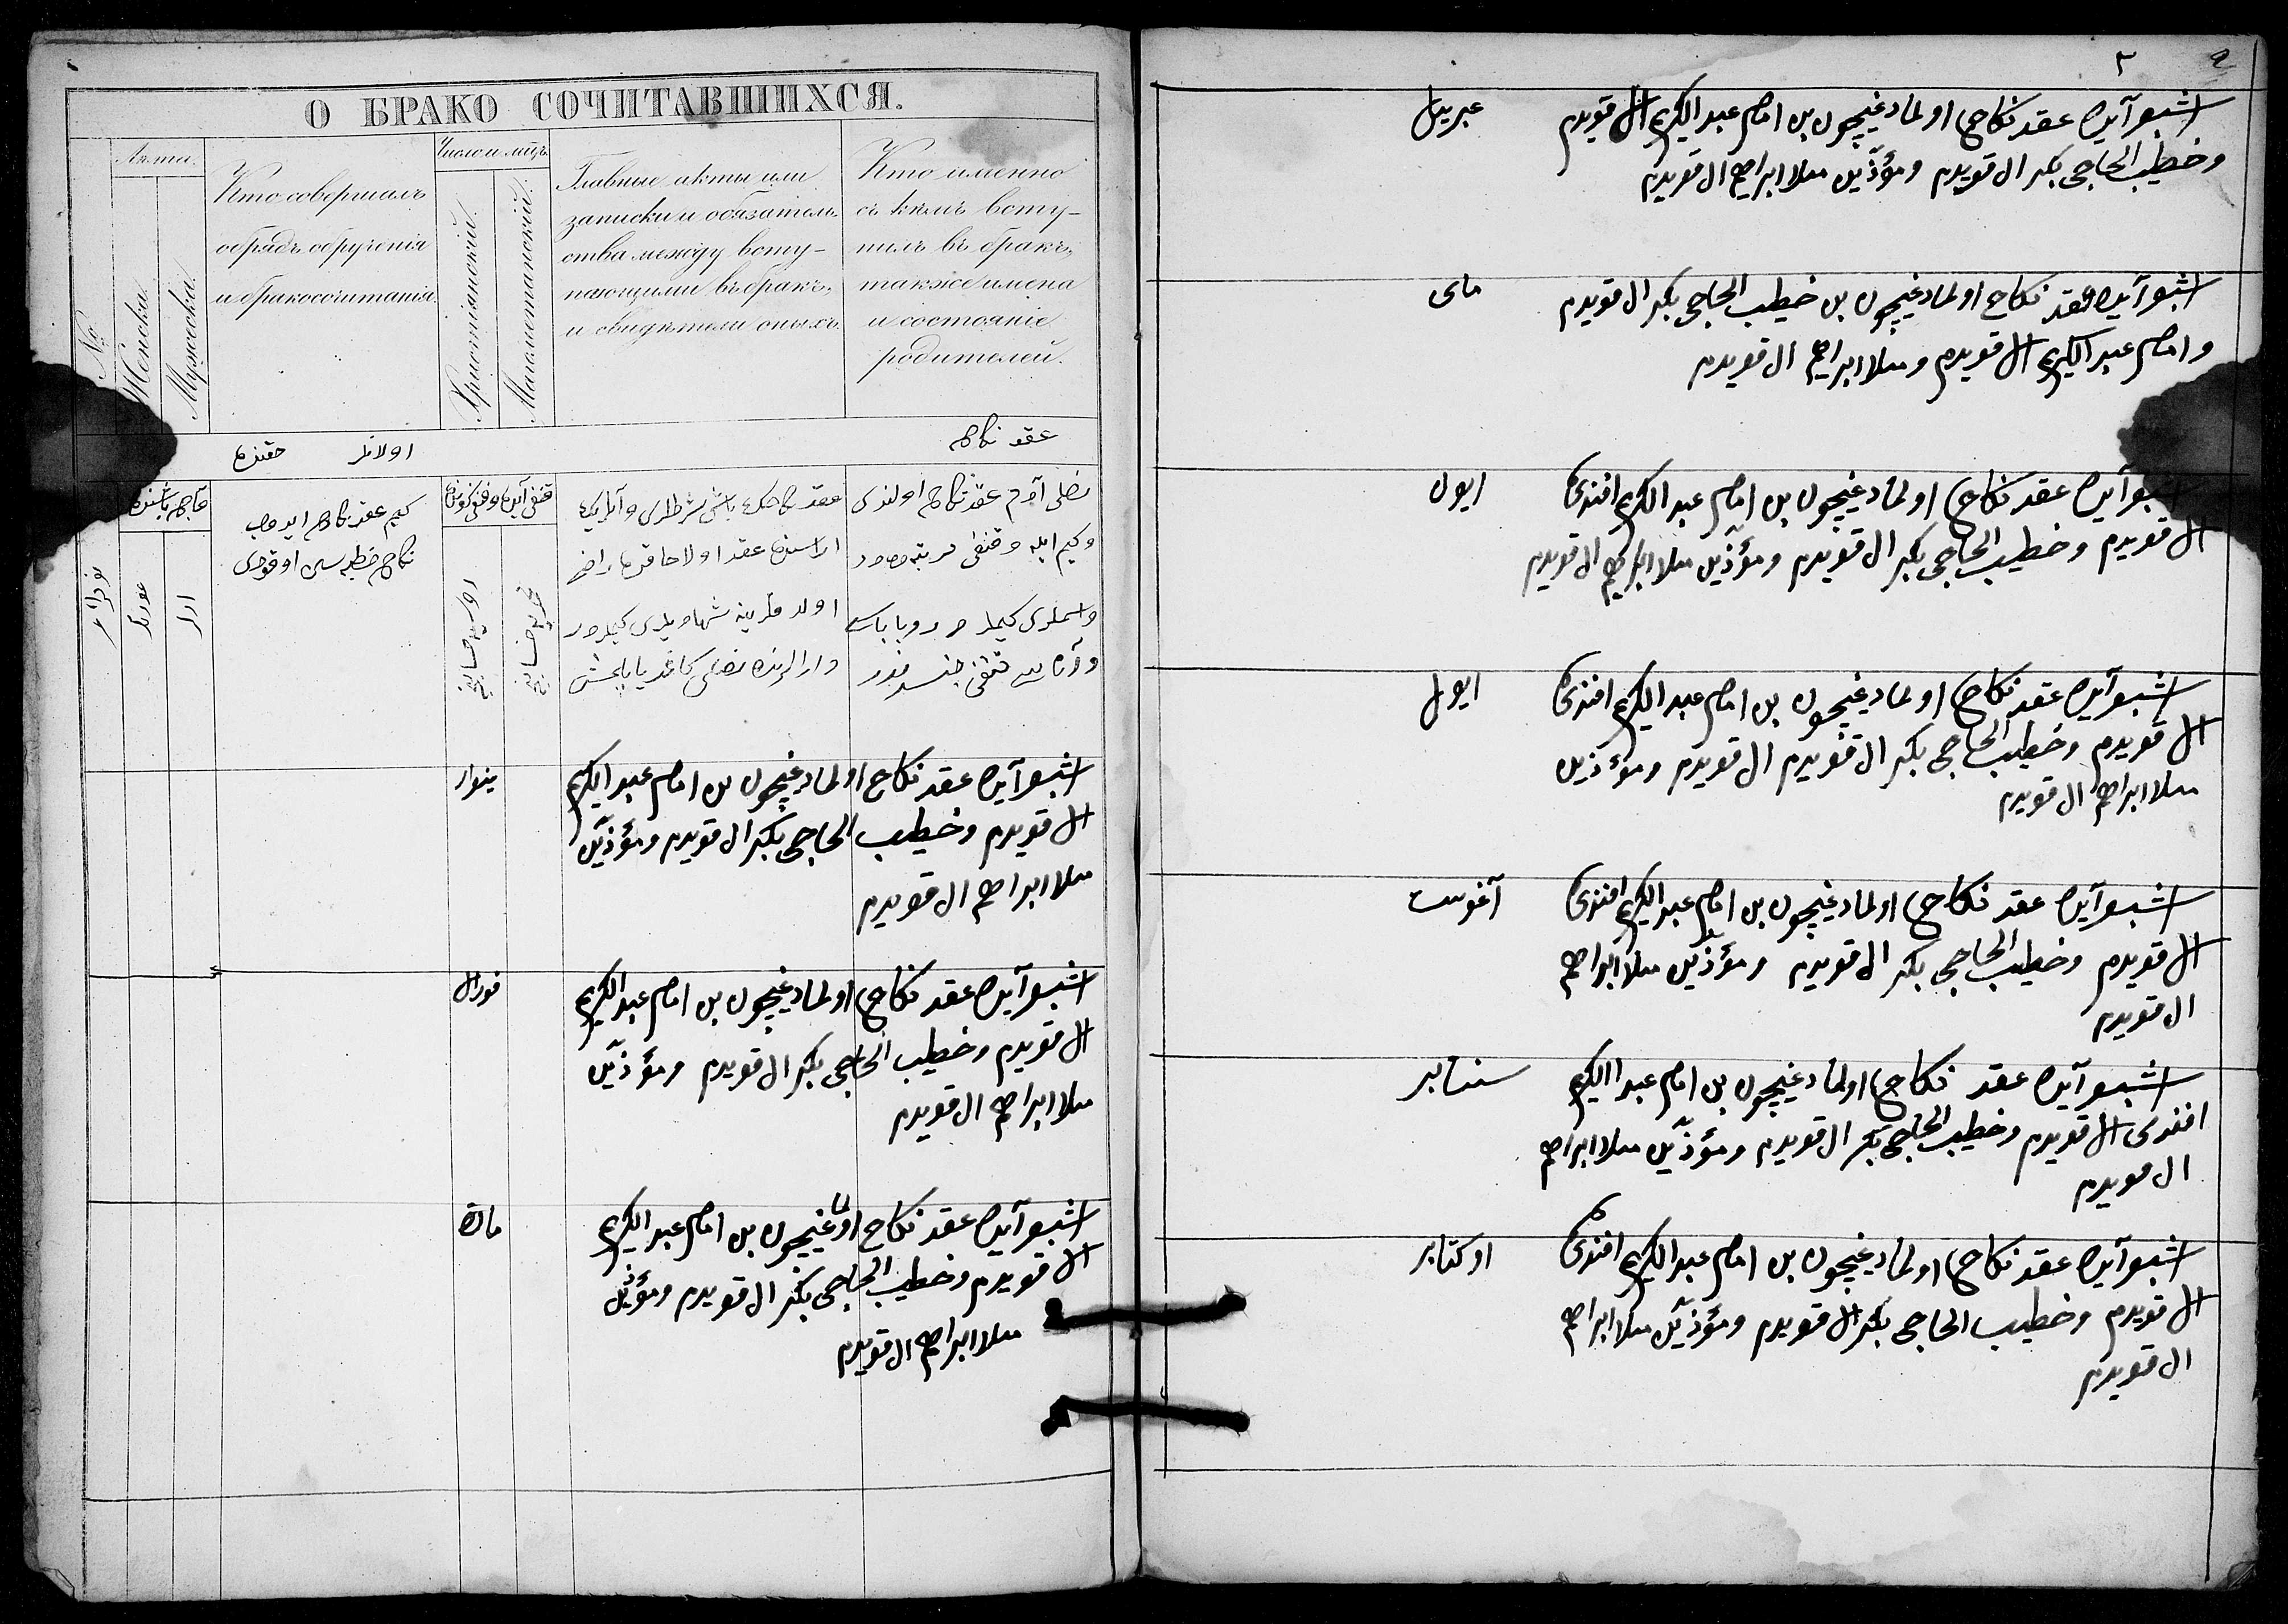 О БРАКО СОЧИТАВШИХСЯ.
№
Акта.
Женска.
Мужеска.
Кто совершалъ
обрядъ обрученія
и бракосочитанія.
Число и мѣц.
Христіянскій.
Магаметанскій.
Главные акты или
записки и обязатель-
ства между всту-
пающими въ бракъ,
и свидѣтели оныхъ.
Кто именно
съ кѣмъ всту-
пилъ въ бракъ,
также имена
и состояніе
родителей.
عقد نكاح اولانلر حقنده
كيم عقد نكاح ايدوب
نكاح خطبه سى اوقودى
ينوار
اشبو آيده عقد نكاح اولمادغيچون بن امام عبد الكريم
ال قويدم وخطيب الحاجى بكر ال قويدم ومؤذين
ملا ابراهيم ال قويدم
فورال
اشبو آيده عقد نكاح اولمادغيچون بن امام عبد الكريم
ال قويدم وخطيب الحاجى بكر ال قويدم ومؤذين
ملا ابراهيم ال قويدم
مارت
اشبو آيده عقد نكاح اولماغيچون بن امام عبد الكريم
ال قويدم وخطيب الحاجى بكر ال قويدم ومؤذين
ملا ابراهيم ال قويدم
٢
عبريل
اشبو آيده عقد نكاح اولمادغيچون بن امام عبد الكريم ال قويدم
وخطيب الحاجى بكر ال قويدم ومؤذين ملا ابراهيم ال قويدم
ماى
اشبو آيده عقد نكاح اولمادغيچون بن خطيب الحاجى بكر ال قويدم
وامام عبد الكريم ال قويدم وملا ابراهيم ال قويدم
ايون
اشبو آيده عقد نكاح اولمادغيچون بن امام عبد الكريم افندى
ال قويدم وخطيب الحاجى بكر ال قويدم ومؤذين ملا ابراهيم ال قويدم
ايول
اشبو آيده عقد نكاح اولمادغيچون بن امام عبد الكريم افندى
ال قويدم وخطيب الحاجى بكر ال قويدم ال قويدم ومؤذين
ملا ابراهيم ال قويدم
آغوست
اشبو آيده عقد نكاح اولمادغيچون بن امام عبد الكريم افندى
ال قويدم وخطيب الحاجى بكر ال قويدم ومؤذين ملا ابراهيم
ال قويدم
سنتابر
اشبو آيده عقد نكاح اولمادغيچون بن امام عبد الكريم
افندى ال قويدم وخطيب الحاجى بكر ال قويدم ومؤذين ملا ابراهيم
ال قويدم
اوكتابر
اشبو آيده عقد نكاح اولمادغيچون بن امام عبد الكريم افندى
ال قويدم وخطيب الحاجى بكر ال قويدم ومؤذين ملا ابراهيم
ال قويدم